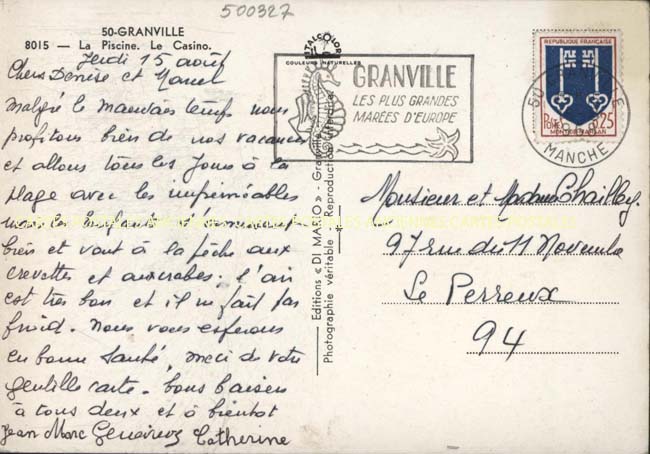 500327
50-GRANVILLE
8015 — La Piscine. Le Casino.
Jeudi 15 août
Chers Denise et Marcel
Malgré le mauvais temps nous
profitons bien de nos vacances
et allons tous les jours à la
plage avec les imperméables
mais les enfants s'
bien et vont à la pêche aux
crevettes et aux crabes; l'air
est très bon et il ne fait pas
froid. Nous vous espérons
en bonne santé, merci de votre
gentille carte. bons baisers
à tous deux et à bientôt
Jean Marc Geneviève Catherine
COULEURS NATURELLES
Editions « DI MARIO » - Granville
Photographie véritable - Reproduction interdite
GRANVILLE
LES PLUS GRANDES
MARÉES D'EUROPE
REPUBLIQUE FRANÇAISE
POSTES 0,25
MONT-DE-MARSAN
50 GRANVILLE
MANCHE
Monsieur et Madame Chailley
97 rue du 11 Novembre
Le Perreux
94